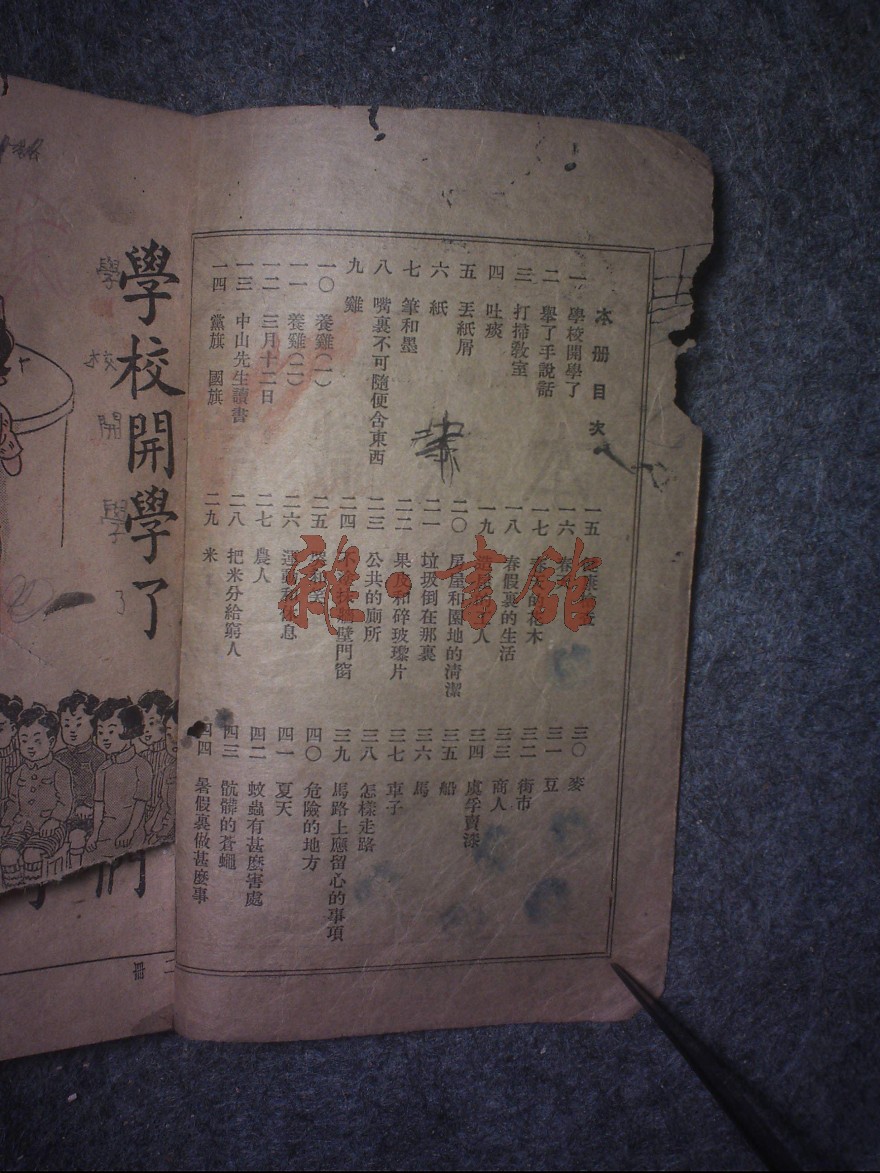 本册目次
一 學校開學了
二 舉了手說話
三 打掃敎室
四 吐痰
五 丟紙屑
六 紙
七 筆和墨
八 嘴裏不可隨便含東西
九 雞
一〇 養雞(一)
一一 養雞(二)
一二 三月十二日
一三 中山先生讀書
一四 黨旗 國旗
一五
一六
一七 春天的花木
一八 春假裏的生活
一九 人
二〇 房屋和園地的清潔
二一 垃圾倒在那裏
二二 果皮和碎玻璨片
二三 公共的廁所
二四 壁門窗
二五
二六 運動和休息
二七 農人
二八 把米分給窮人
二九 米
三〇 麥
三一 豆
三二 街市
三三 商人
三四 虞孚賣漆
三五 船
三六 馬
三七 車子
三八 怎樣走路
三九 馬路上應留心的事項
四〇 危險的地方
四一 夏天
四二 蚊蟲有甚麽害處
四三 骯髒的蒼蠅
四四 暑假裏做甚麽事
雜·書館
學校開學了
學校開學了
們